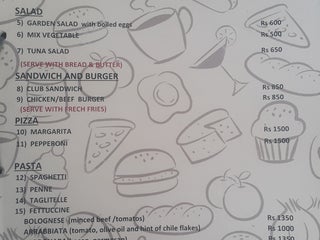 SALAD
5) GARDEN SALAD with boiled eggs Rs 600
6) MIX VEGETABLE Rs 500
7) TUNA SALAD Rs 650
(SERVE WITH BREAD & BUTTER)
SANDWICH AND BURGER
8) CLUB SANDWICH Rs 850
9) CHICKEN/BEEF BURGER Rs 850
(SERVE WITH FRECH FRIES)
PIZZA
10) MARGARITA Rs 1500
11) PEPPERONI Rs 1500
PASTA
12) SPAGHETTI
13) PENNE
14) TAGLITELLE
15) FETTUCINE
BOLOGNESE (minced beef /tomatos) Rs 1350
ARRABBIATA (tomato, olive pil and hint of chile flakes) Rs 1000